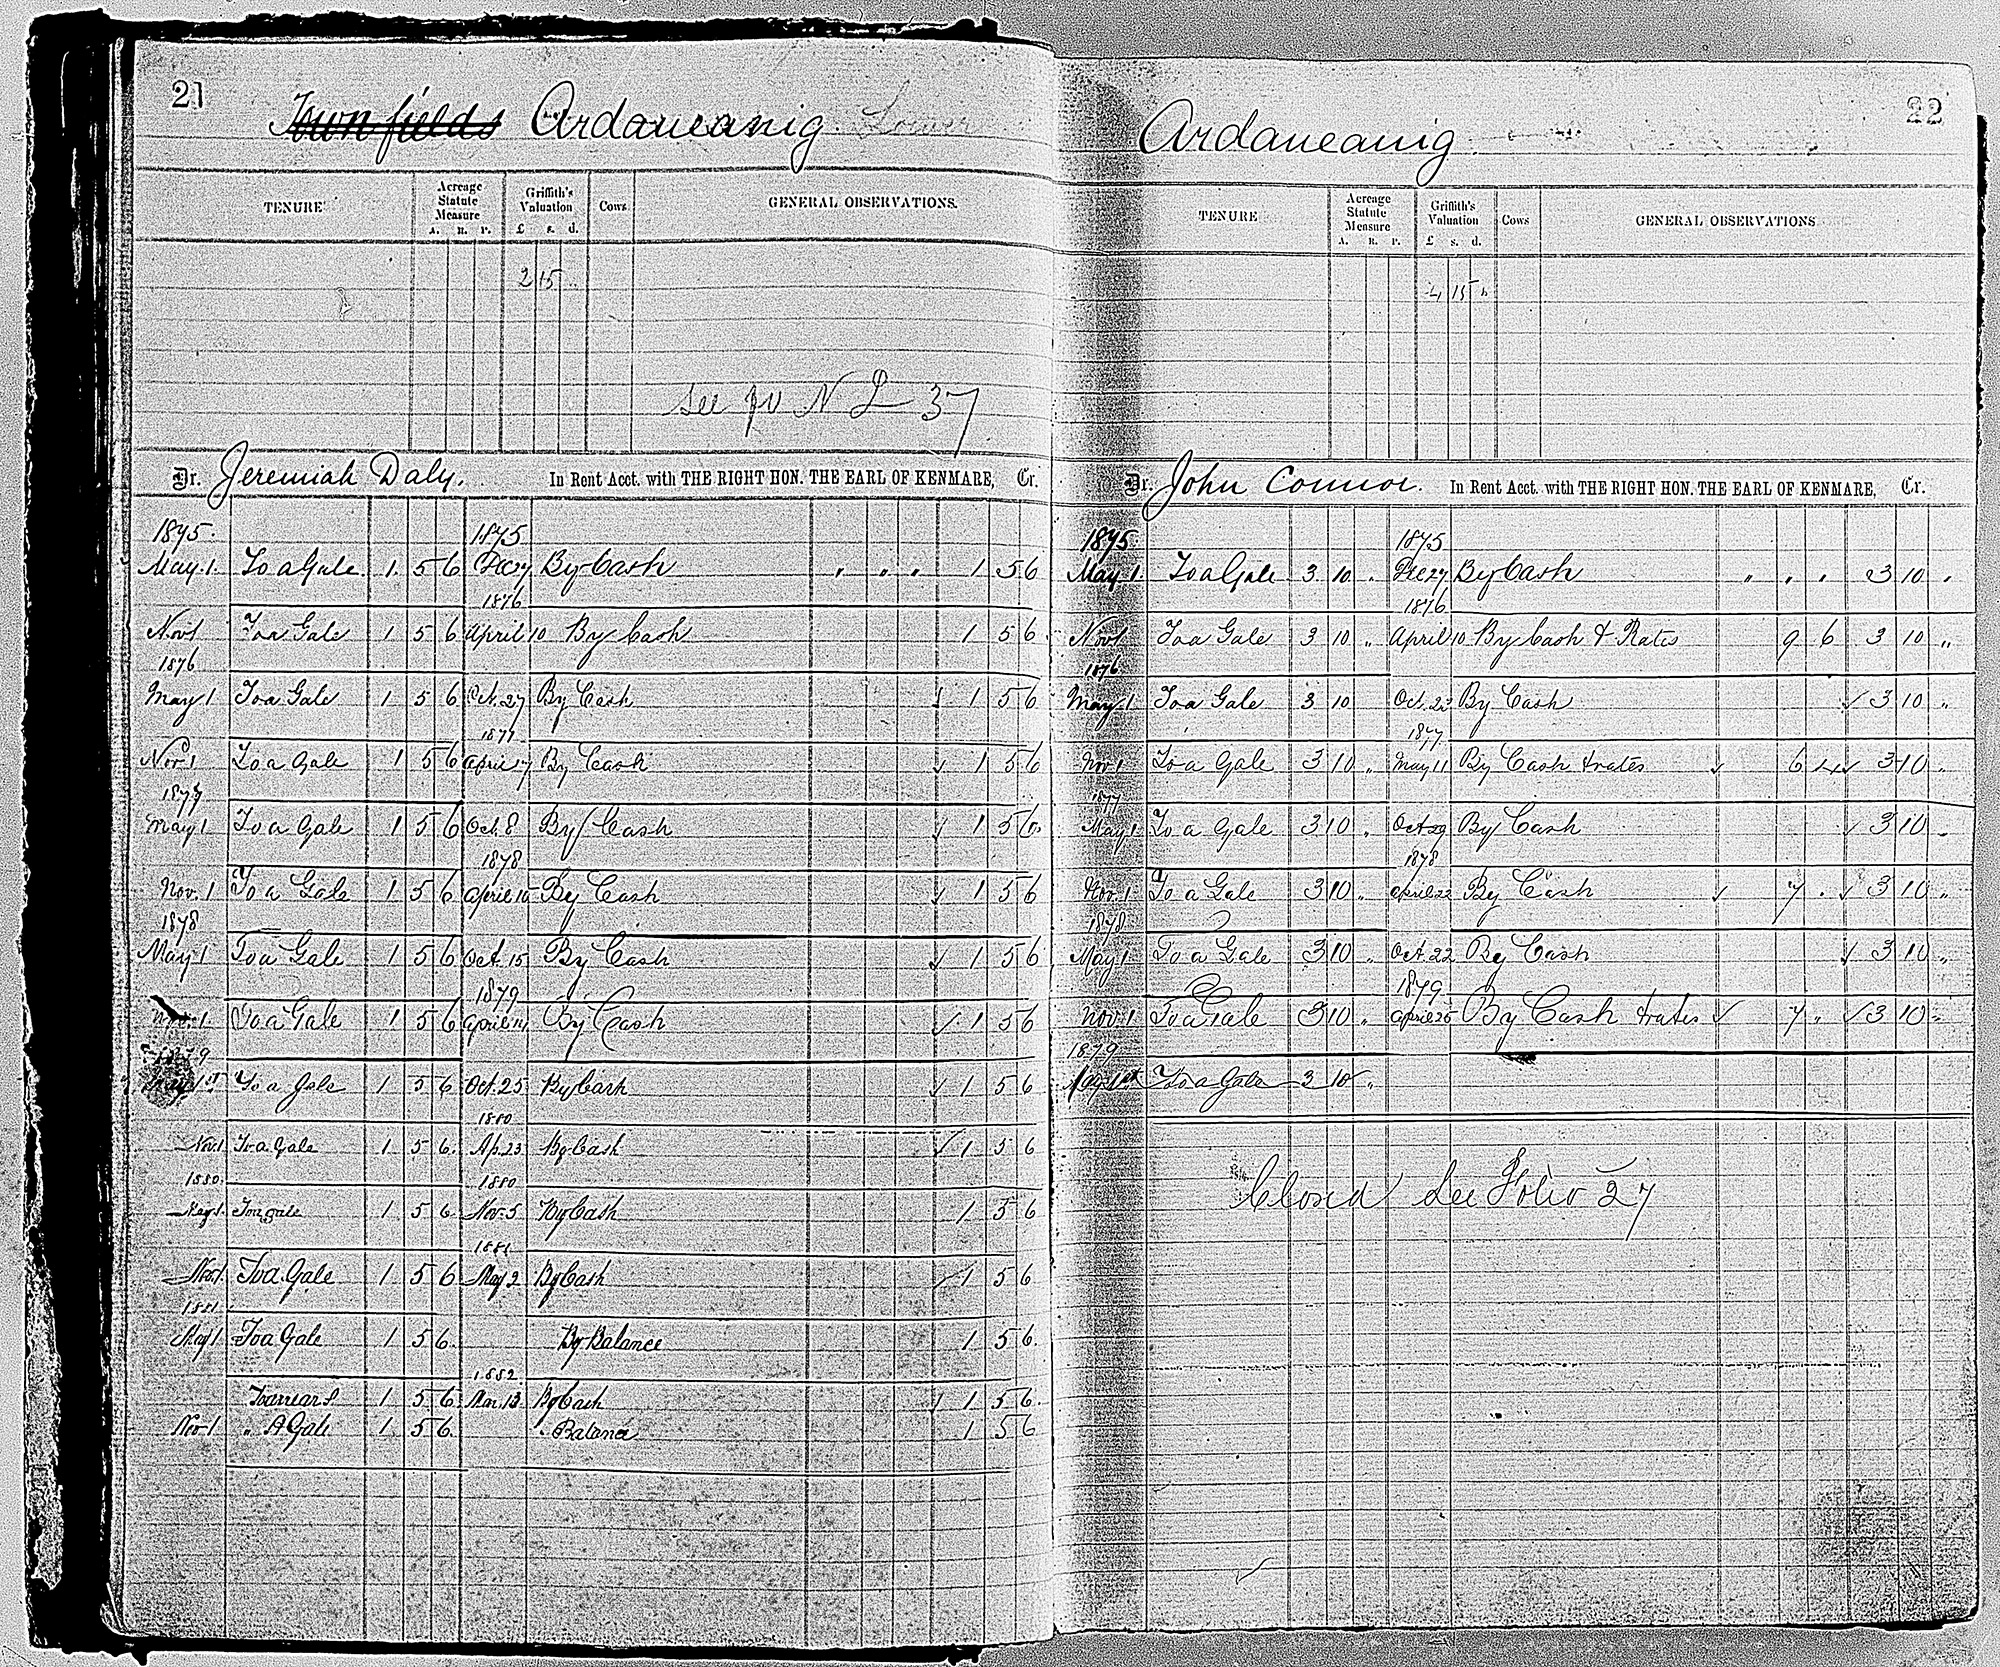 21
Townfields Ardaneanig Lower
TENURE Acreage Statute Measure Griffith's Valuation Cows GENERAL OBSERVATIONS.
A. R. P. £ s. d.
2 15 ..
see N L 37
Dr. Jeremiah Daly. In Rent Acct. with THE RIGHT HON. THE EARL OF KENMARE, Cr.
1875. 1875
May. 1. To a Gale. 1. 5 6 Dec 27 By Cash " " " 1 5 6
1876
Nov 1 To a Gale 1 5 6 April 10 By Cash 1 5 6
1876
May 1 To a Gale 1 5 6 Oct. 27 By Cash ✓ 1 5 6
1877
Nov 1 To a Gale 1 5 6 April 17 By Cash ✓ 1 5 6
1877
May 1 To a Gale 1 5 6 Oct. 8 By Cash ✓ 1 5 6
1878
Nov. 1 To a Gale 1 5 6 April 10 By Cash ✓ 1 5 6
1878
May 1 To a Gale 1 5 6 Oct. 15 By Cash ✓ 1 5 6
1879
Nov. 1 To a Gale 1 5 6 April 14 By Cash ✓ 1 5 6
1879
May 1st To a Gale 1 5 6 Oct. 25 By Cash ✓ 1 5 6
1880
Nov. 1 To a Gale 1 5 6. Ap. 23 By Cash ✓ 1 5 6
1880. 1880
May 1. To a gale 1 5 6. Nov. 5 By Cash 1 5 6
1881
Nov. 1. To a Gale 1 5 6 May 2 By Cash ✓ 1 5 6
1881
May 1 To a Gale 1 5 6. By Balance 1 5 6.
1882.
To arrears 1 5 6 Mar. 13 By Cash ✓ 1 5 6.
Nov 1 " A Gale 1 5 6. " Balance 1 5 6
22
Ardaneanig
TENURE Acreage Statute Measure Griffith's Valuation Cows GENERAL OBSERVATIONS
A. R. P. £ s. d.
4 15 "
Dr. John Connor. In Rent Acct. with THE RIGHT HON. THE EARL OF KENMARE, Cr.
1875. 1875
May 1 To a Gale 3 10 " Dec 27 By Cash " " " 3 10 "
1876
Nov 1 To a Gale 3 10 " April 10 By Cash & Rates 9 6 3 10 "
1876
May 1 To a Gale 3 10 Oct. 23 By Cash ✓ 3 10 "
1877
Nov 1 To a Gale 3 10 " May 11 By Cash & rates ✓ 6 4 ✓ 3 10 "
1877
May 1 To a Gale 3 10 " Oct 29 By Cash ✓ 3 10 "
1878
Nov. 1 To a Gale 3 10 " April 22 By Cash ✓ 7 . ✓ 3 10 "
1878
May 1 To a Gale 3 10 " Oct. 22 By Cash ✓ 3 10 "
1879
Nov. 1 To a Gale 3 10 " April 25 By Cash & rates ✓ 7 " ✓ 3 10 "
1879
May 1st To a Gale 3 10 "
Closed See Folio 27